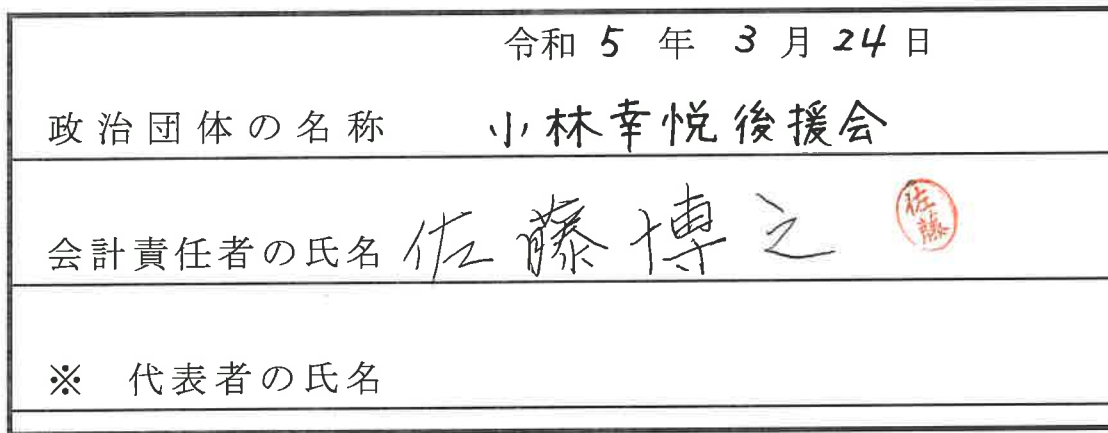 令和 5 年 3 月 24 日
政治団体の名称 小林幸悦後援会
会計責任者の氏名 佐藤博之 佐藤
※ 代表者の氏名